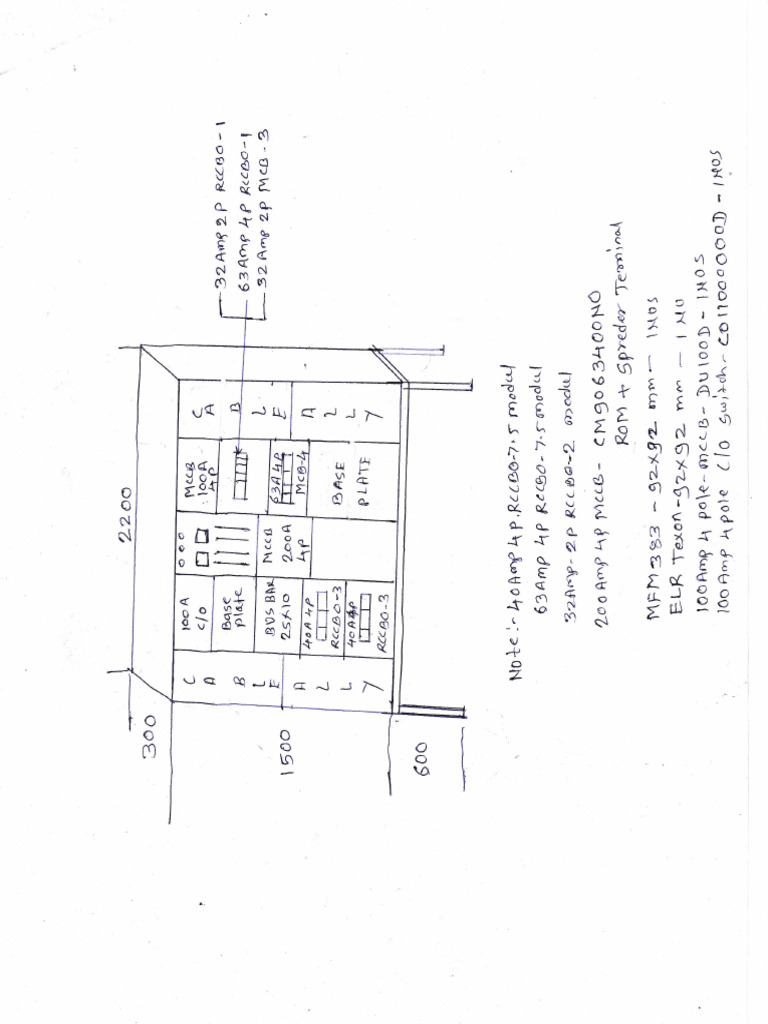 2200
300
1500
600
CABLE ALLY
100A
C/O
Base
plate
BUS BAR
25X10
40A 4P
RCCBO-3
40A 4P
RCCBO-3
MCCB
200A
4P
MCCB
100A
4P
63A 4P
MCB-4
BASE
PLATE
CABLE ALLY
32Amp 2P RCCBO-1
63Amp 4P RCCBO-1
32Amp 2P MCB-3
Note:- 40Amp 4P.RCCBO-7.5 modul
63Amp 4P RCCBO-7.5modul
32Amp-2P RCCBO-2 modul
200Amp 4P MCCB- CM9063400NO
ROM + Spreder Terminal
MFM 383 - 92x92 mm - 1NOS
ELR Texon-92x92 mm - 1NO
100Amp 4 pole-mccB-DU100D-1NOS
100Amp 4pole C/O switch-CO11000000D-1NOS